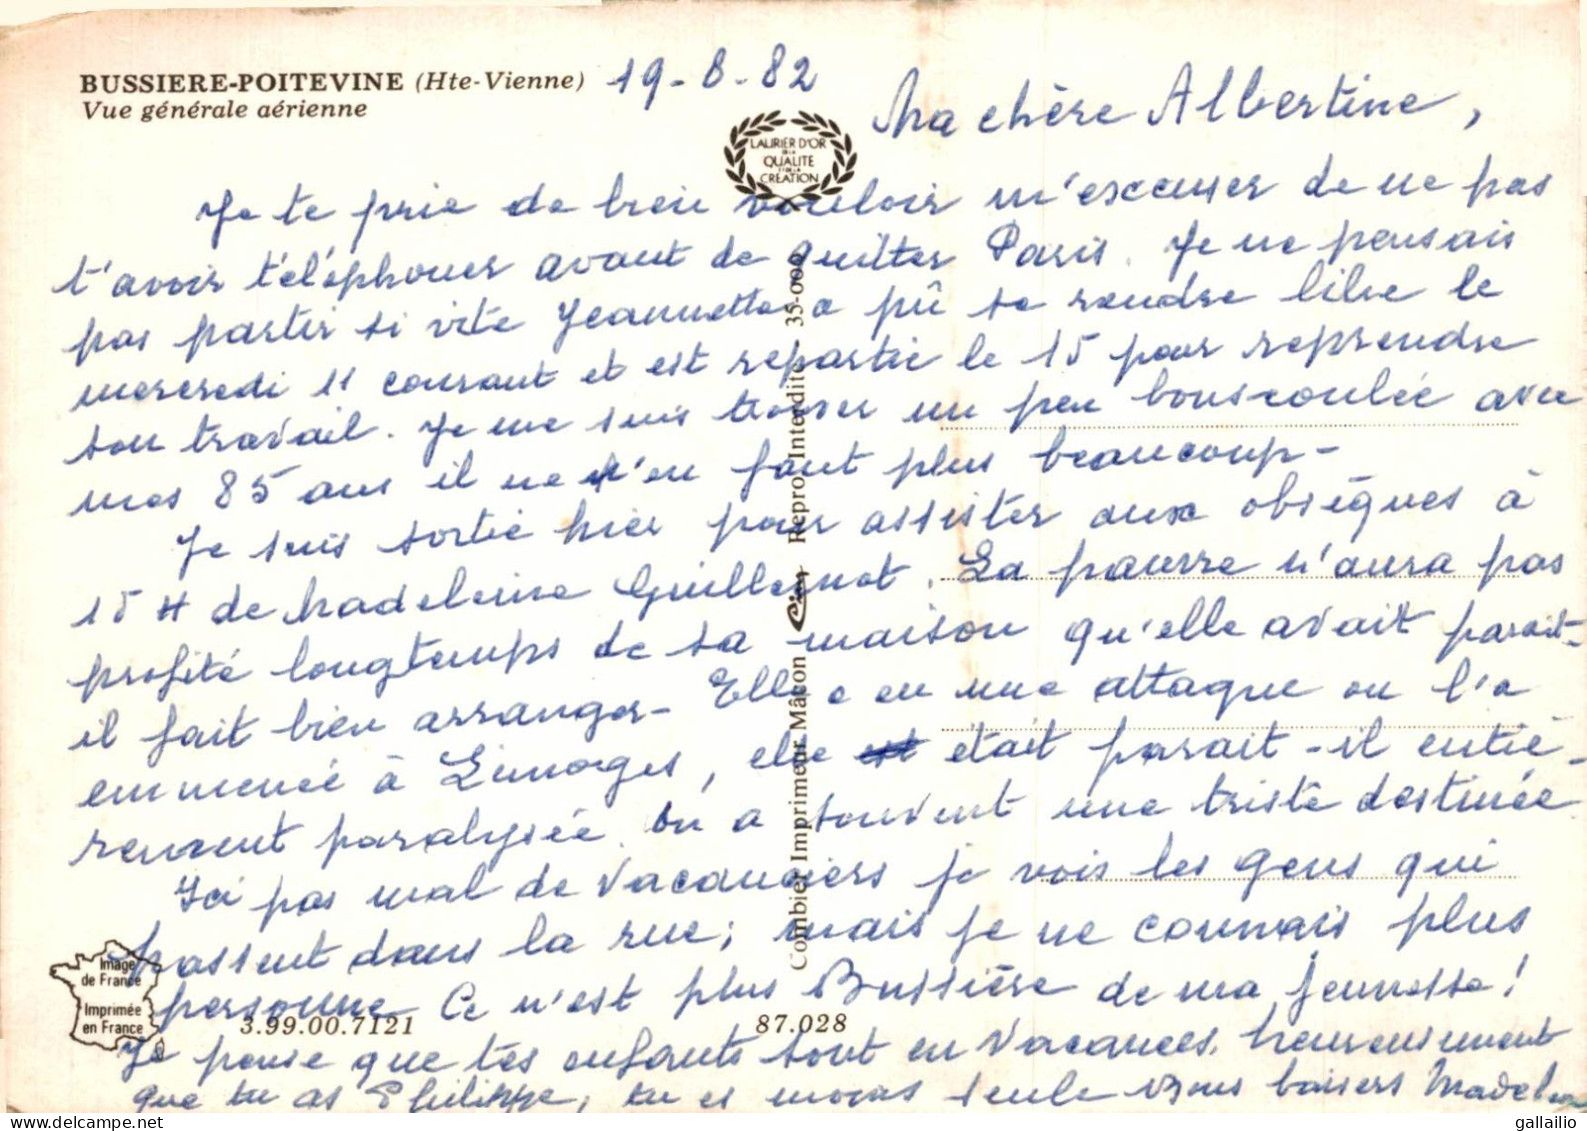 BUSSIERE-POITEVINE (Hte-Vienne) 19-8-82
Vue générale aérienne
LAURIER D'OR
DE LA
QUALITE
ET DE LA
CREATION
Ma chère Albertine,
Je te prie de bien vouloir m'excuser de ne pas
t'avoir téléphoner avant de quitter Paris. Je ne pensais
pas partir si vite Jeannette a pû se rendre libre le
mercredi 11 courant et est repartie le 15 pour reprendre
son travail. Je me suis trouver un peu bousculée avec
mes 85 ans il ne m'en faut plus beaucoup-
Je suis sortie hier pour assister aux obsèques à
15 H de Madeleine Guillemot. La pauvre n'aura pas
profité longtemps de sa maison qu'elle avait parait-
il fait bien arranger- Elle a eu une attaque on l'a
emmenée à Limoges, elle était parait-il entiè-
rement paralysée. On a souvent une triste destinée
Ici pas mal de vacanciers je vois les gens qui
passent dans la rue; mais je ne connais plus
personne Ce n'est plus Bussière de ma jeunesse!
Je pense que tes enfants sont en vacances, heureusement
que tu as Philippe, tu es moins seule Bons baisers
Combier Imprimeur Mâcon Cim Repro. Interdite 35-000
Image
de France
Imprimée
en France
3.99.00.7121
87.028
gallailio